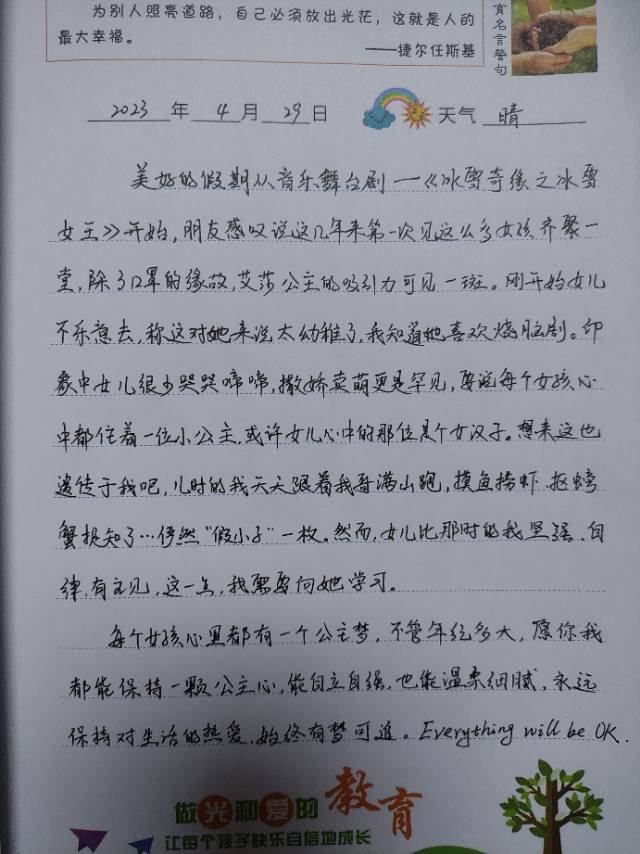 为别人照亮道路，自己必须放出光芒，这就是人的
最大幸福。
——捷尔任斯基
育名言警句
2023 年 4 月 29 日 天气 晴
美好的假期从音乐舞台剧—《冰雪奇缘之冰雪
女王》开始，朋友感叹说这几年来第一次见这么多女孩齐聚一
堂，除了口罩的缘故，艾莎公主的吸引力可见一斑。刚开始女儿
不乐意去，称这对她来说太幼稚了，我知道她喜欢烧脑剧。印
象中女儿很少哭哭啼啼，撒娇卖萌更是罕见，要说每个女孩心
中都住着一位小公主，或许女儿心中的那位是个女汉子。想来这也
遗传于我吧，儿时的我天天跟着我哥满山跑，摸鱼捞虾、抠螃
蟹捉知了…俨然“假小子”一枚。然而，女儿比那时的我坚强、自
律，有主见，这一点，我需要向她学习。
每个女孩心里都有一个公主梦，不管年纪多大，愿你我
都能保持一颗公主心，能自立自强，也能温柔细腻，永远
保持对生活的热爱，始终有梦可追。Everything will be OK.
做光和爱的教育
让每个孩子快乐自信地成长